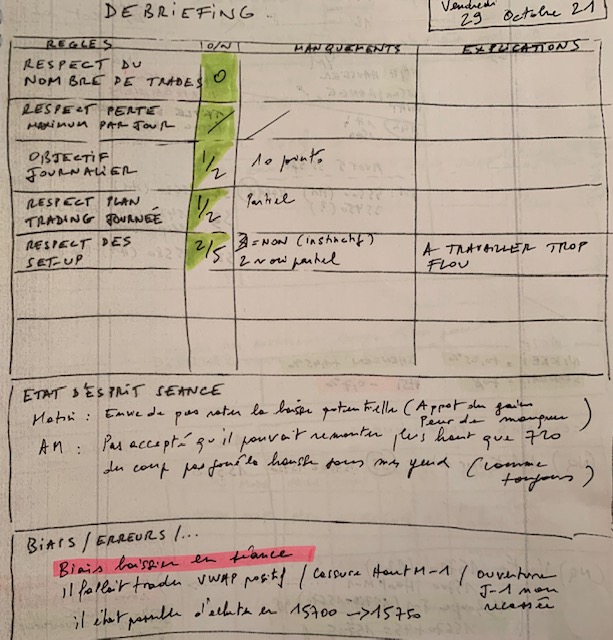 DEBRIEFING
Vendredi
29 Octobre 21
REGLES O/N MANQUEMENTS EXPLICATIONS
RESPECT DU
NOMBRE DE TRADES O
RESPECT PERTE
MAXIMUM PAR JOUR / /
OBJECTIF
JOURNALIER 1/2 10 points
RESPECT PLAN
TRADING JOURNÉE 1/2 Partiel
RESPECT DES
SET-UP 2/5 3 = NON (instinctif)
2 partiel
A TRAVAILLER TROP
FLOU
ETAT D'ESPRIT SEANCE
Matin : Envie de pas rater la baisse potentielle (Appat du gain
Peur de manquer)
AM : Pas accepté qu'il pouvait remonter plus haut que 720
du coup pas joué la hausse sous mes yeux (comme
toujours)
BIAIS / ERREURS / ...
Biais baissier en séance
il fallait trader VWAP positif / Cassure Haut M-1 / ouverture
J-1 non
il était possible d'acheter en 15700 → 15750